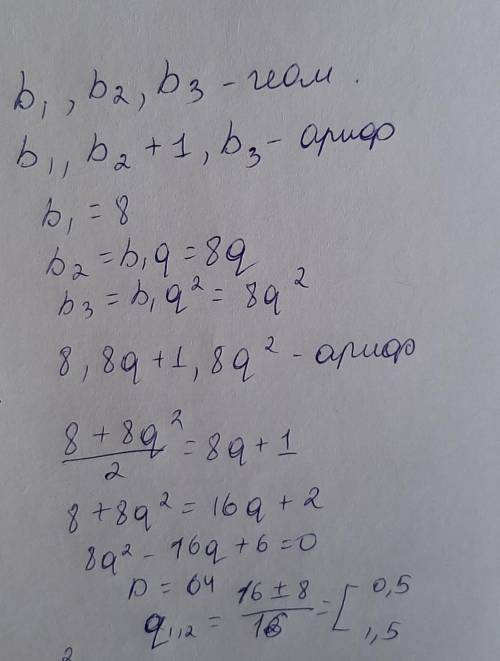 b₁, b₂, b₃ - геом.
b₁, b₂ + 1, b₃ - ариф
b₁ = 8
b₂ = b₁q = 8q
b₃ = b₁q² = 8q²
8, 8q + 1, 8q² - ариф
(8 + 8q²)/2 = 8q + 1
8 + 8q² = 16q + 2
8q² - 16q + 6 = 0
D = 64
q₁,₂ = (16 ± 8)/16 = [ 0,5
1,5